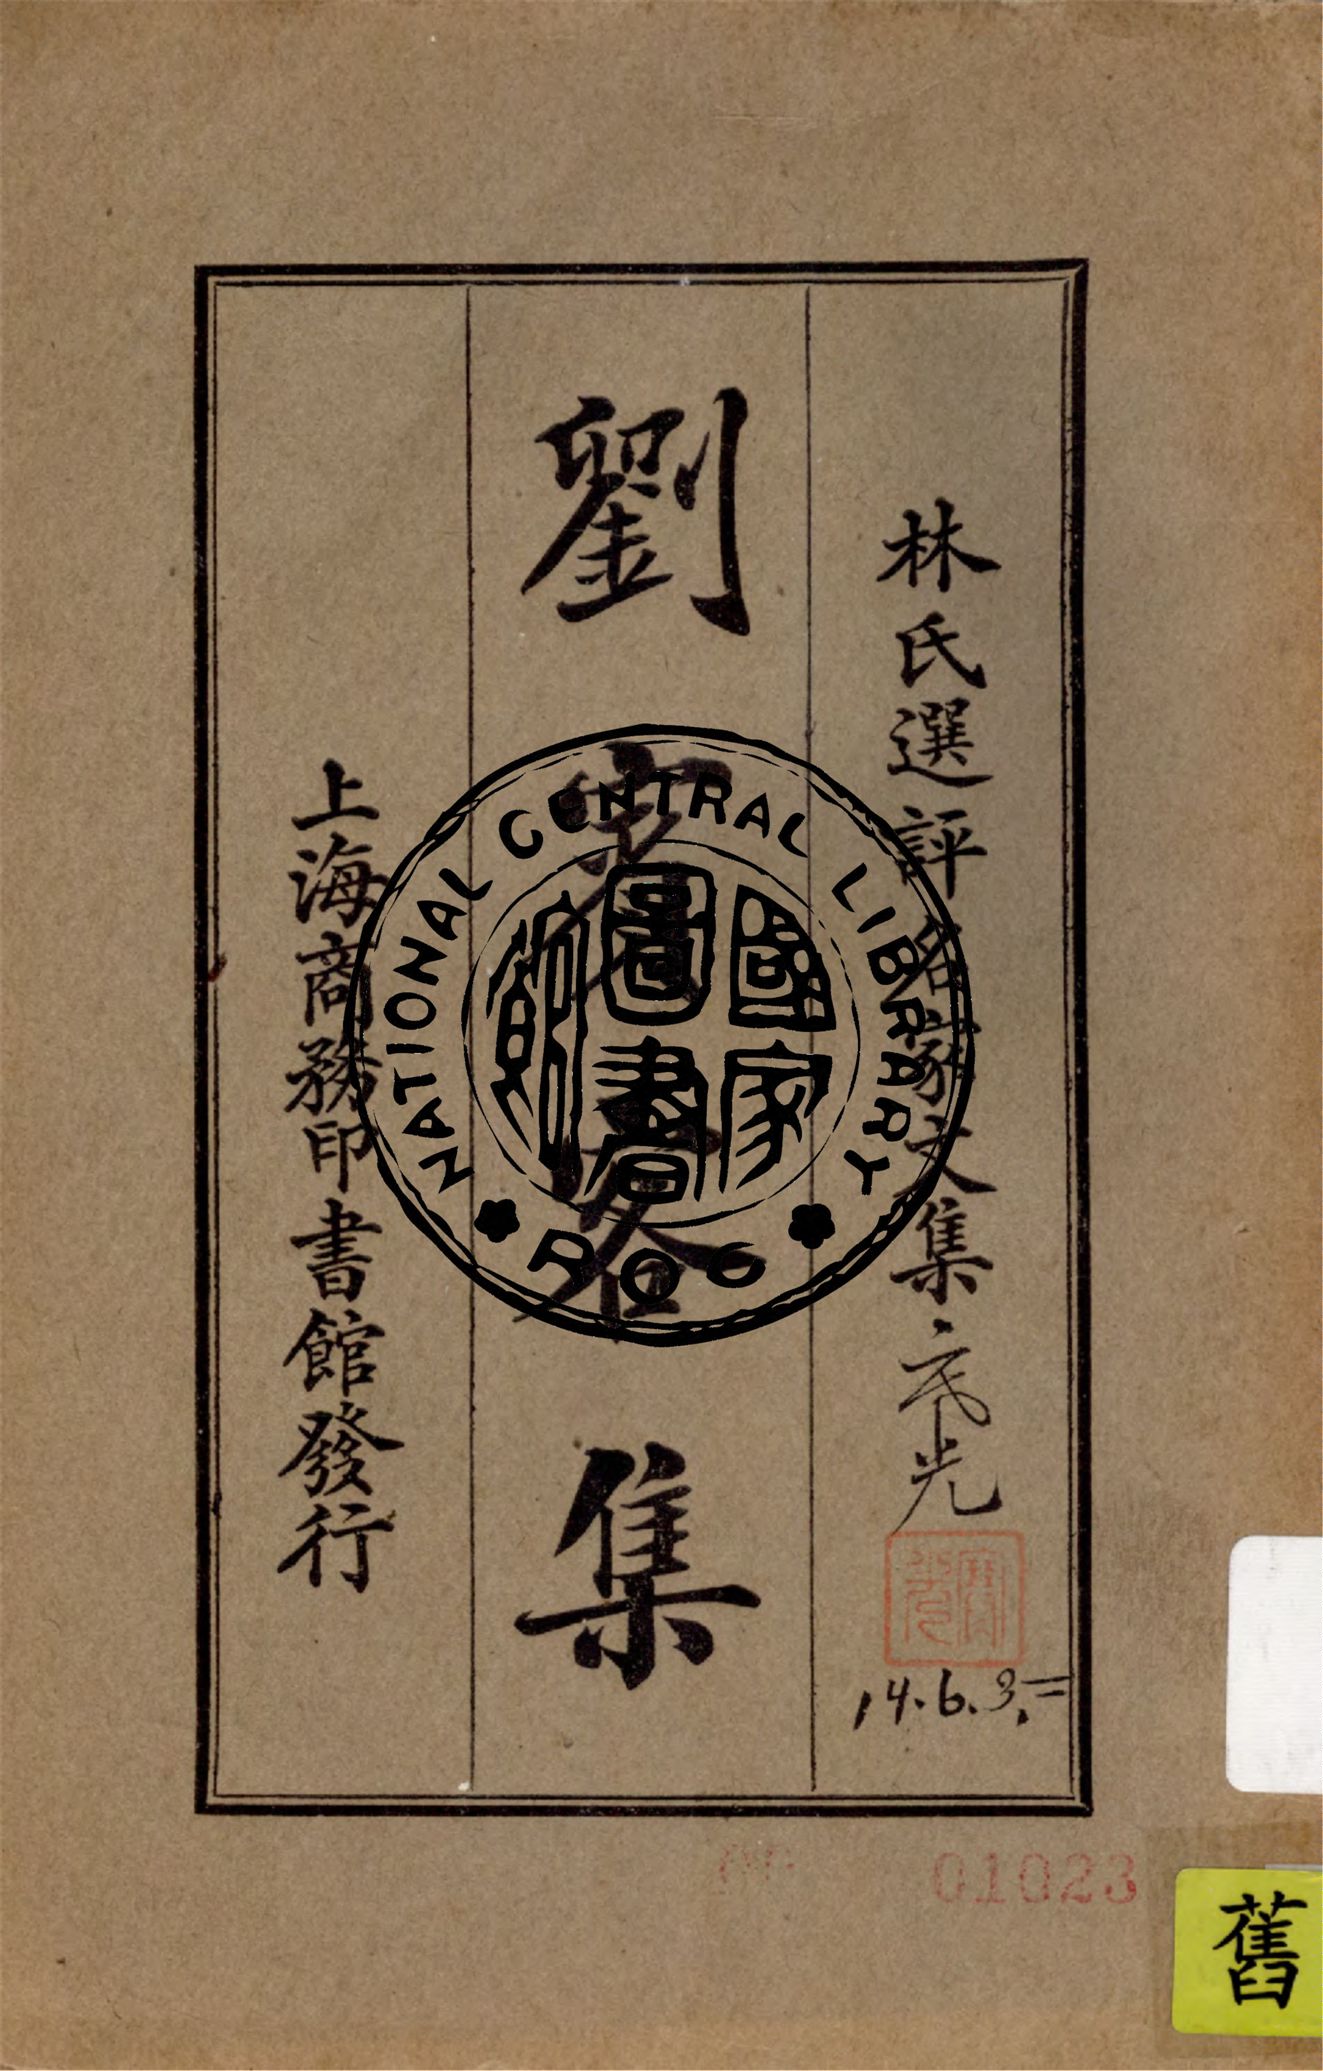 林氏選評名家文集
14.6.3.
劉賓客集
上海商務印書館發行
NATIONAL CENTRAL LIBRARY
ROC
國家圖書館
01023
舊